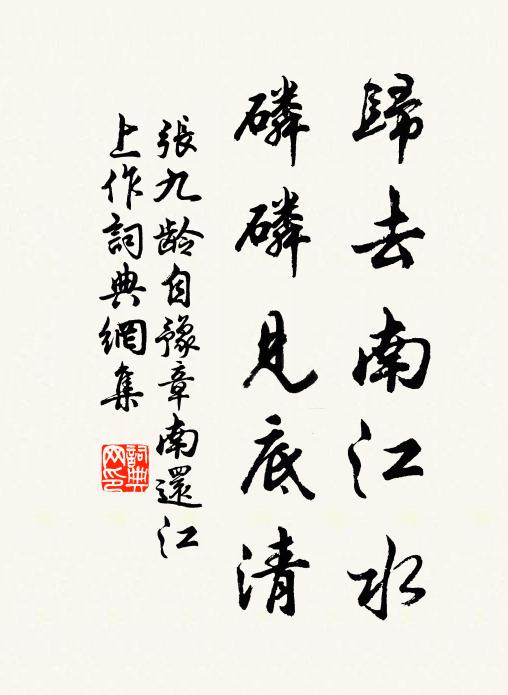 歸去南江水
磷磷見底清
張九龄自豫章南還江
上作詞典網集
詞典
网印